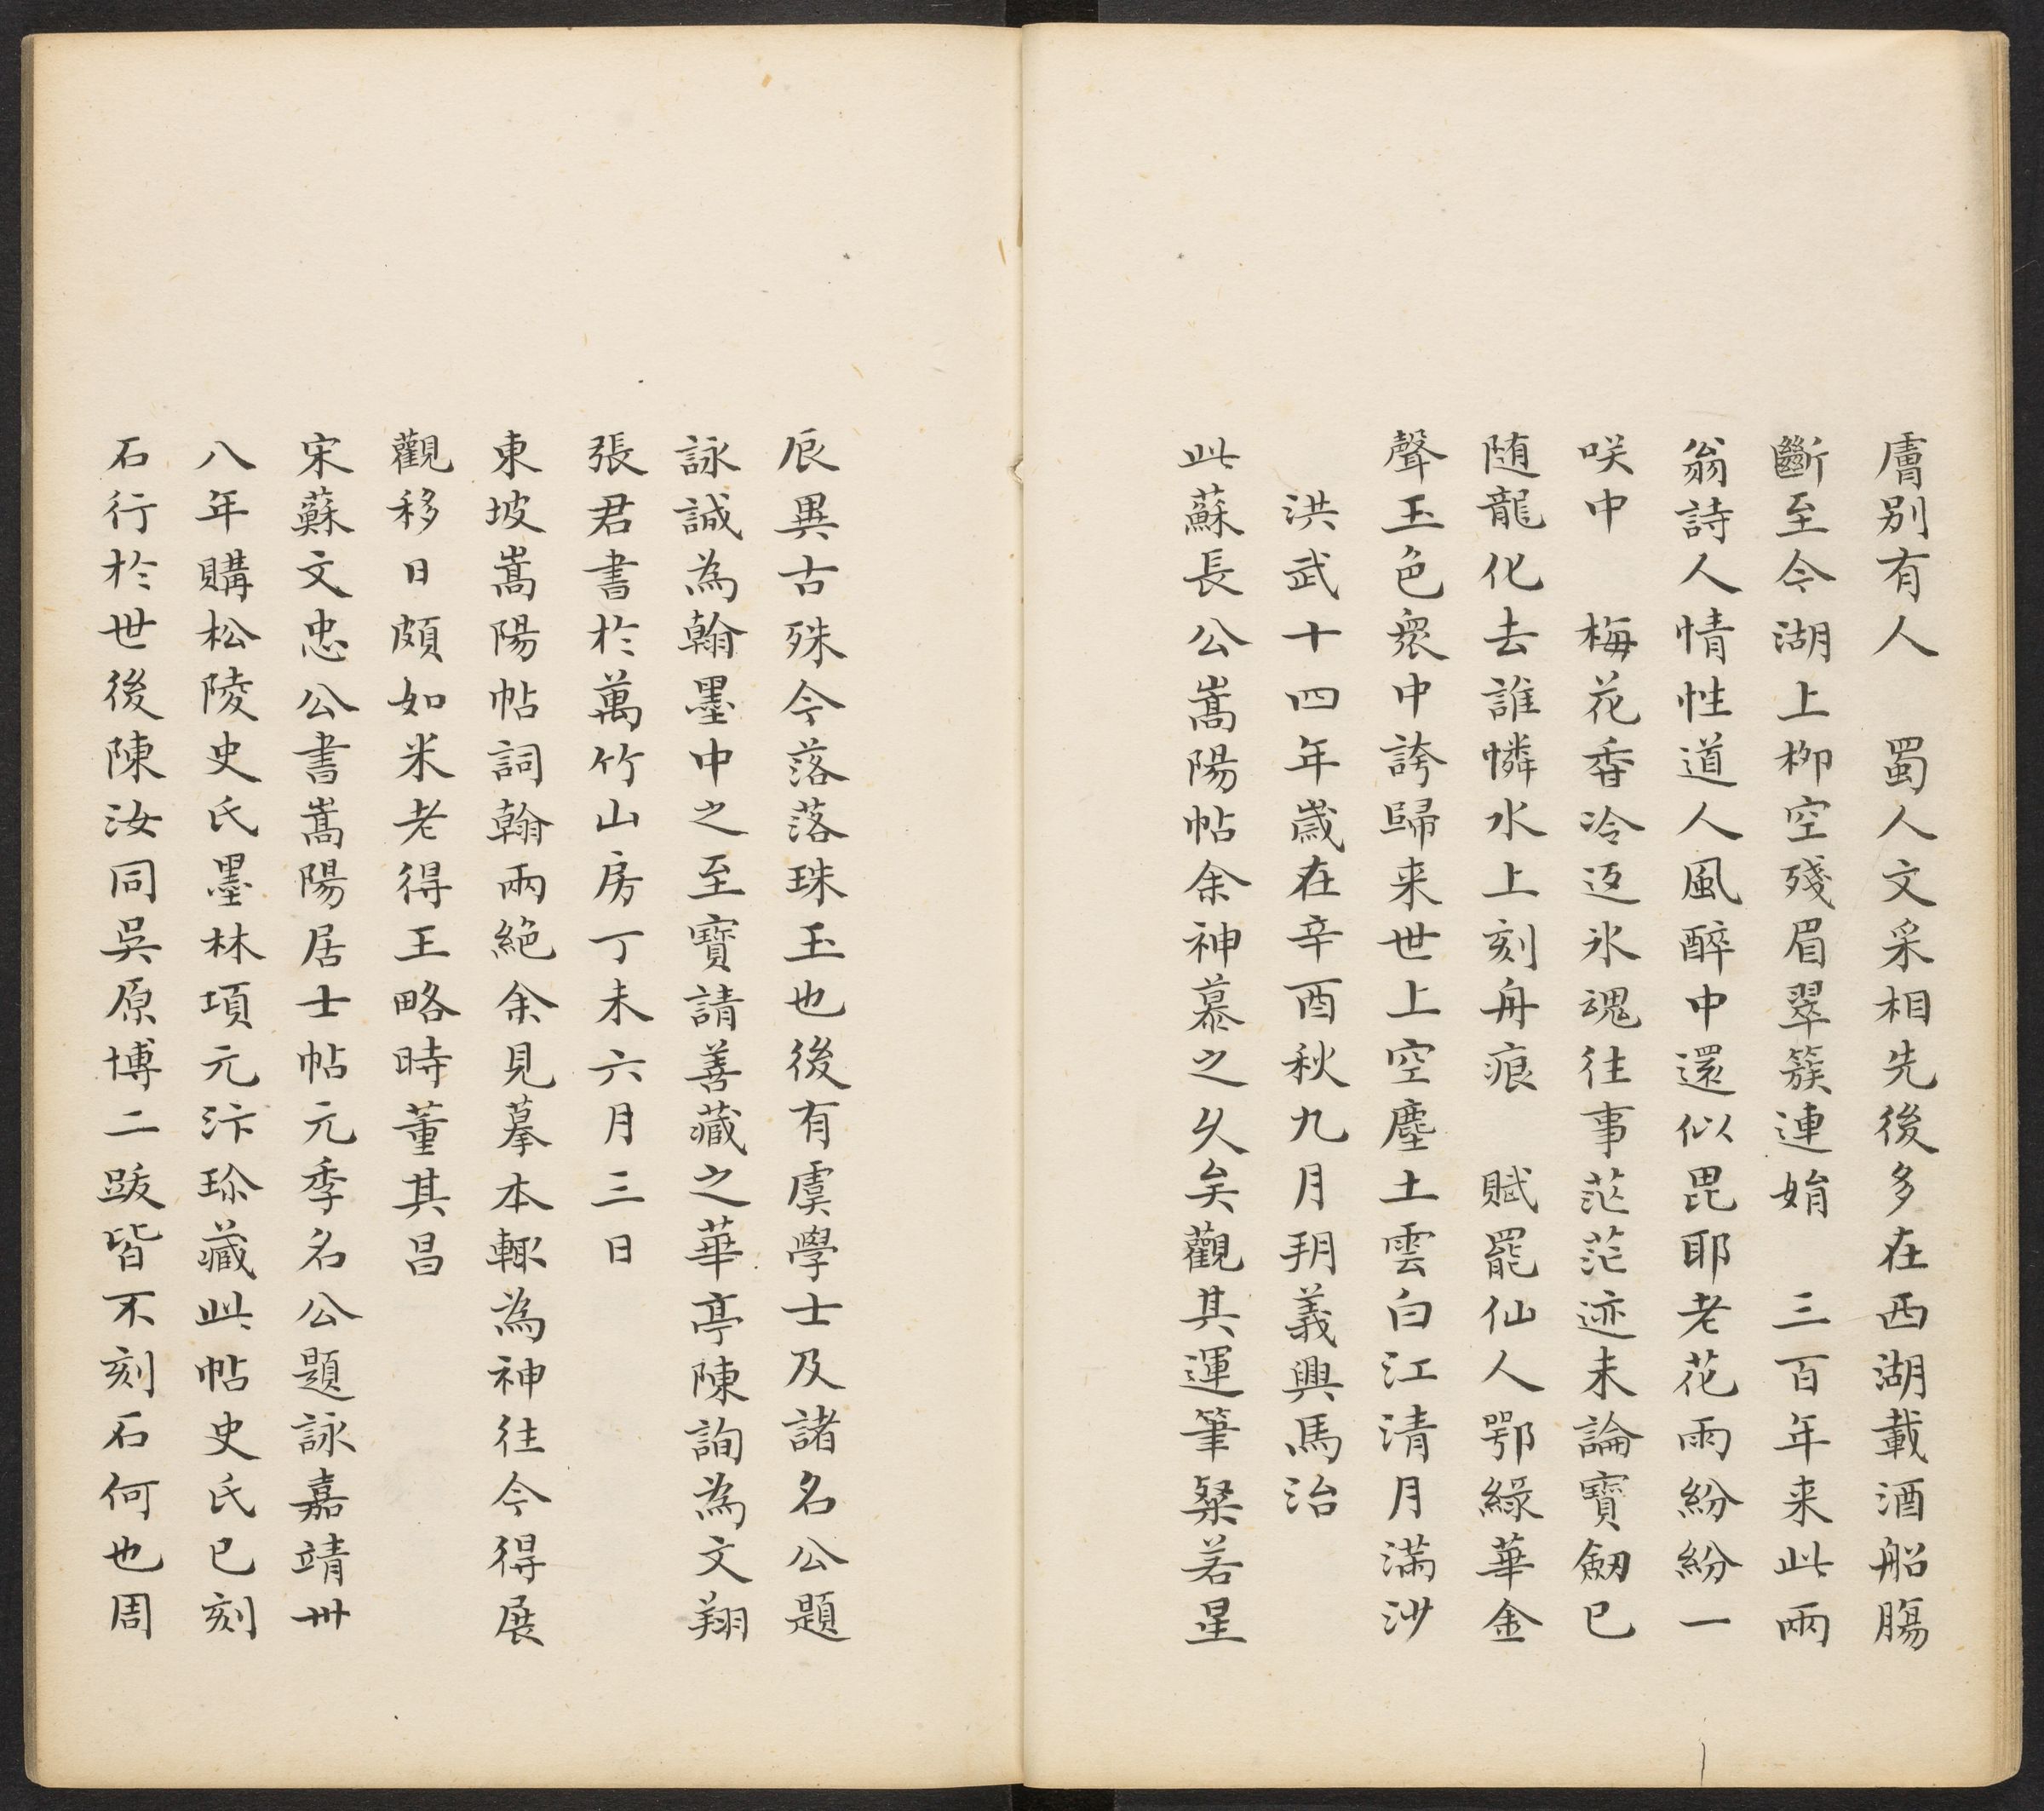 膚別有人　蜀人文采相先後多在西湖載酒船腸
斷至今湖上柳空殘眉翠簇連娟　三百年来此兩
翁詩人情性道人風醉中還似毘耶老花雨紛紛一
咲中　梅花香冷返氷魂往事茫茫迹未論寶劒已
随龍化去誰憐水上刻舟痕　賦罷仙人鄂綠華金
聲玉色衆中誇歸来世上空塵土雲白江清月滿沙
洪武十四年歲在辛酉秋九月朔義興馬治
此蘇長公嵩陽帖余神慕之乆矣觀其運筆粲若星
辰異古殊今落落珠玉也後有虞學士及諸名公題
詠誠為翰墨中之至寶請善藏之華亭陳詢為文翔
張君書於萬竹山房丁未六月三日
東坡嵩陽帖詞翰兩絕余見摹本輙為神往今得展
觀移日頗如米老得王略時董其昌
宋蘇文忠公書嵩陽居士帖元季名公題詠嘉靖卅
八年購松陵史氏墨林項元汴珎藏此帖史氏已刻
石行於世後陳汝同吳原博二跋皆不刻石何也周